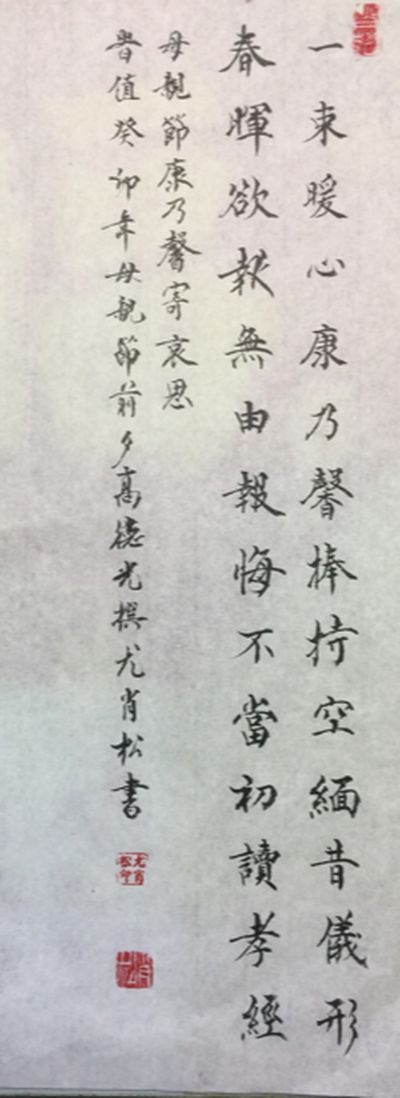 一束暖心康乃馨捧持空緬昔儀形
春暉欲報無由報悔不當初讀孝經
母親節康乃馨寄哀思
時值癸卯年母親節前夕高德光撰尤肖松書
尤肖松印